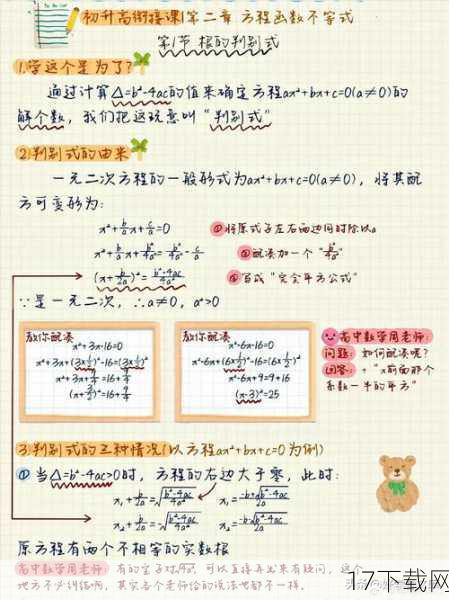 初升高衔接课|第二章 方程函数不等式
第1节 根的判别式
1.学这个是为了?
通过计算△=b²-4ac的值来确定方程ax²+bx+c=0(a≠0)的
解个数,我们把这玩意叫"判别式"
2)判别式的由来
一元二次方程的一般形式为ax²+bx+c=0(a≠0),将其配
方可变形为:
x²+b/a x+c/a=0 ①将原式子左右两边同时除以a
x²+b/a x+b²/4a²=b²/4a²-c/a ②配凑加一个"b²/4a²"
(x+b/2a)²=b²-4ac/4a² ③写成"完全平方公式"
∵是一元二次,∴a≠0,a²>0
教你配凑
x²+3x-16=0
x²+3x+(3×1/2)²-16=(3×1/2)²
x²+3x+9/4=16+9/4
(x+3/2)²=16+9/4
教你配凑
x²-6x-16=0
x²-6x+(6×1/2)²-16=(6×1/2)²
x²-6x+9=9+16
(x-3)²=25
高中数学周老师:
问题:如何配凑呢?
回答:+"x前面那个
系数一半的平方"
3)判别式的三种情况(以方程ax²+bx+c=0为例)
①当△=b²-4ac>0时,方程的右边大于零,此时:
x₁+b/2a=√b²-4ac/4a² x₁=-b+√b²-4ac/2a
x₂+b/2a=-√b²-4ac/4a² x₂=-b-√b²-4ac/2a
原方程有两个不相等的实数根
高中数学周老师:有的宝子对√4a²可以直接开出来有疑问,这个
地方不必纠结啊,其实各个老师给的说法也都不一样。
17下载网